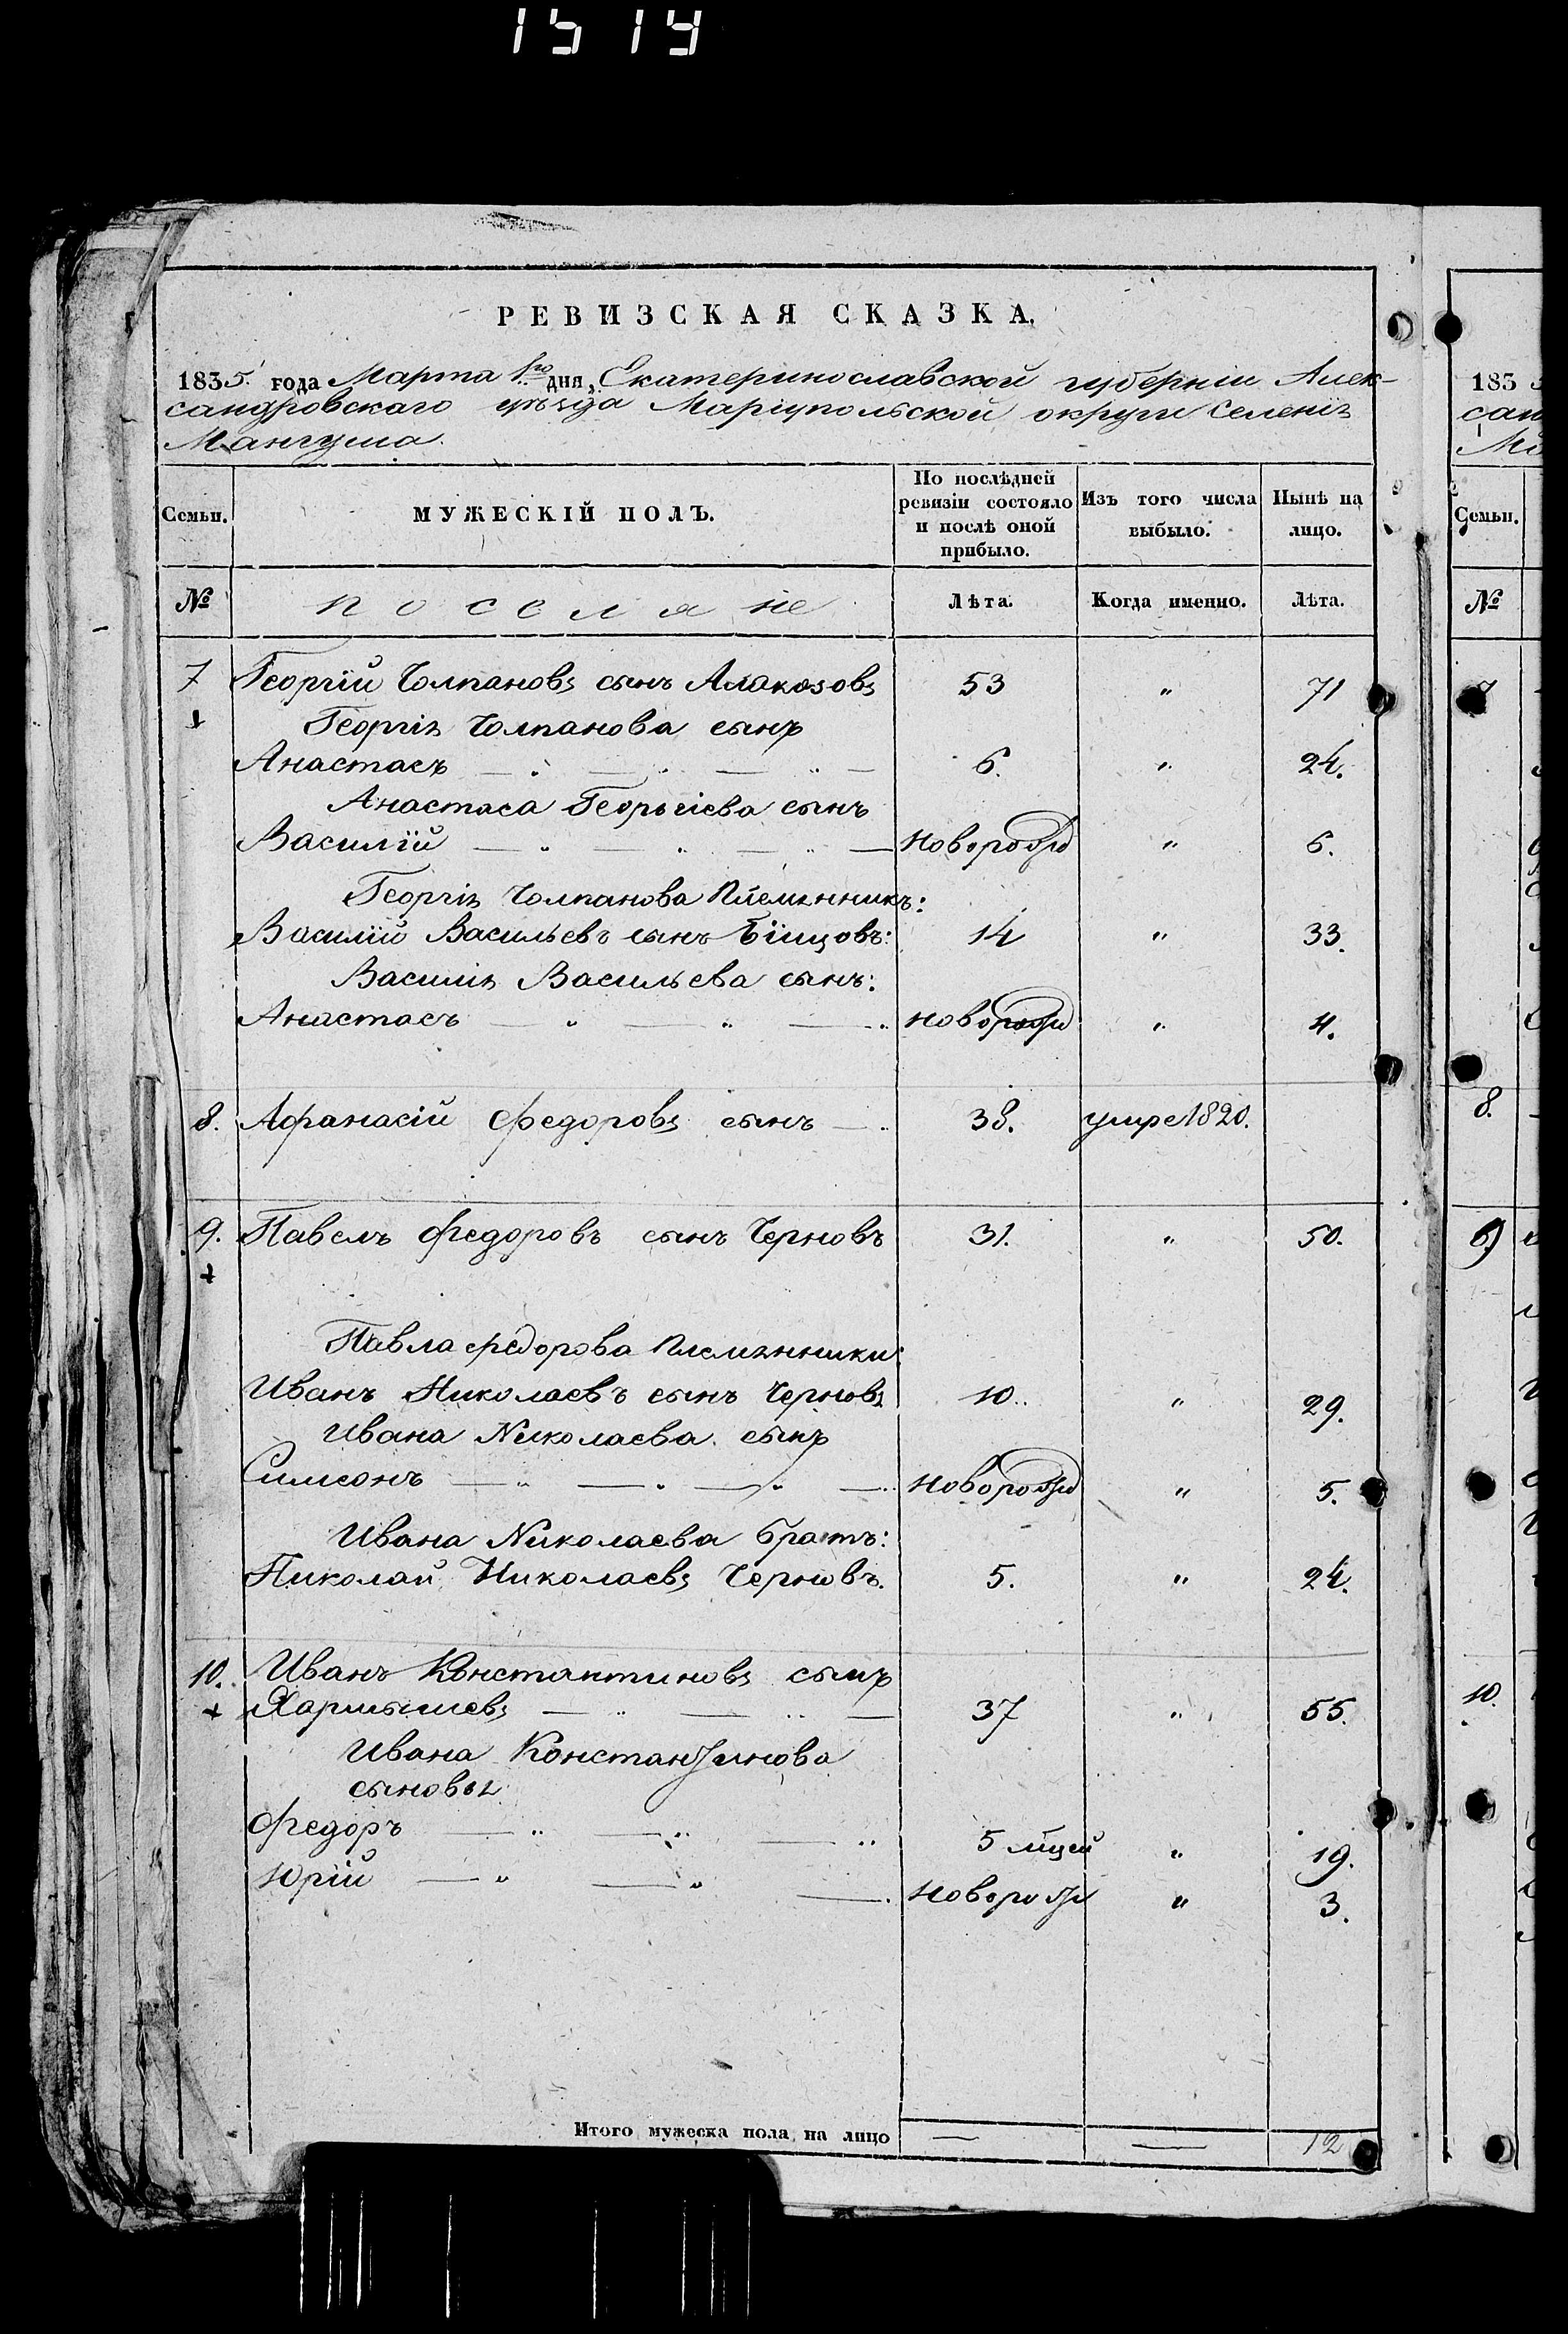 1519
РЕВИЗСКАЯ СКАЗКА.
1835. года Марта 1го дня, Екатеринославской губерніи Алек-
сандровскаго уѣзда Маріупольской округи Селенія
Мангуша.
Семьи.
МУЖЕСКІЙ ПОЛЪ.
По послѣдней ревизіи состояло и послѣ оной прибыло.
Изъ того числа выбыло.
Нынѣ на лицо.
№ поселяне Лѣта. Когда именно. Лѣта.
7 Георгій Чолпановъ сынъ Алакозовъ 53 " 71
Георгія Чолпанова сынъ
Анастасъ — " — " — " — 6. " 24.
Анастаса Георгіева сынъ
Василій — " — " — " — новорожд " 6.
Георгія Чолпанова Племянникъ:
Василій Васильевъ сынъ 14 " 33.
Василія Васильева сынъ:
Анастасъ — " — " — " новорожд " 4.
8. Афанасій Федоровъ сынъ — " 38. умре 1820.
9. Павелъ Федоровъ сынъ Черновъ 31. " 50.
Павла Федорова Племянники:
Иванъ Николаевъ сынъ Черновъ 10. " 29.
Ивана Николаева сынъ
Симеонъ — " — " — " — " новорожд " 5.
Ивана Николаева братъ:
Николай Николаевъ Черновъ. 5. " 24.
10. Иванъ Константиновъ сынъ
Хармышевъ — " — " — 37 " 55.
Ивана Константинова
сыновья
Федоръ — " — " — " 5 мцей " 19.
Юрій — " — " — новорожд " 3.
Итого мужеска пола на лицо — — 12
183
Семьи.
№
8.
9
10.